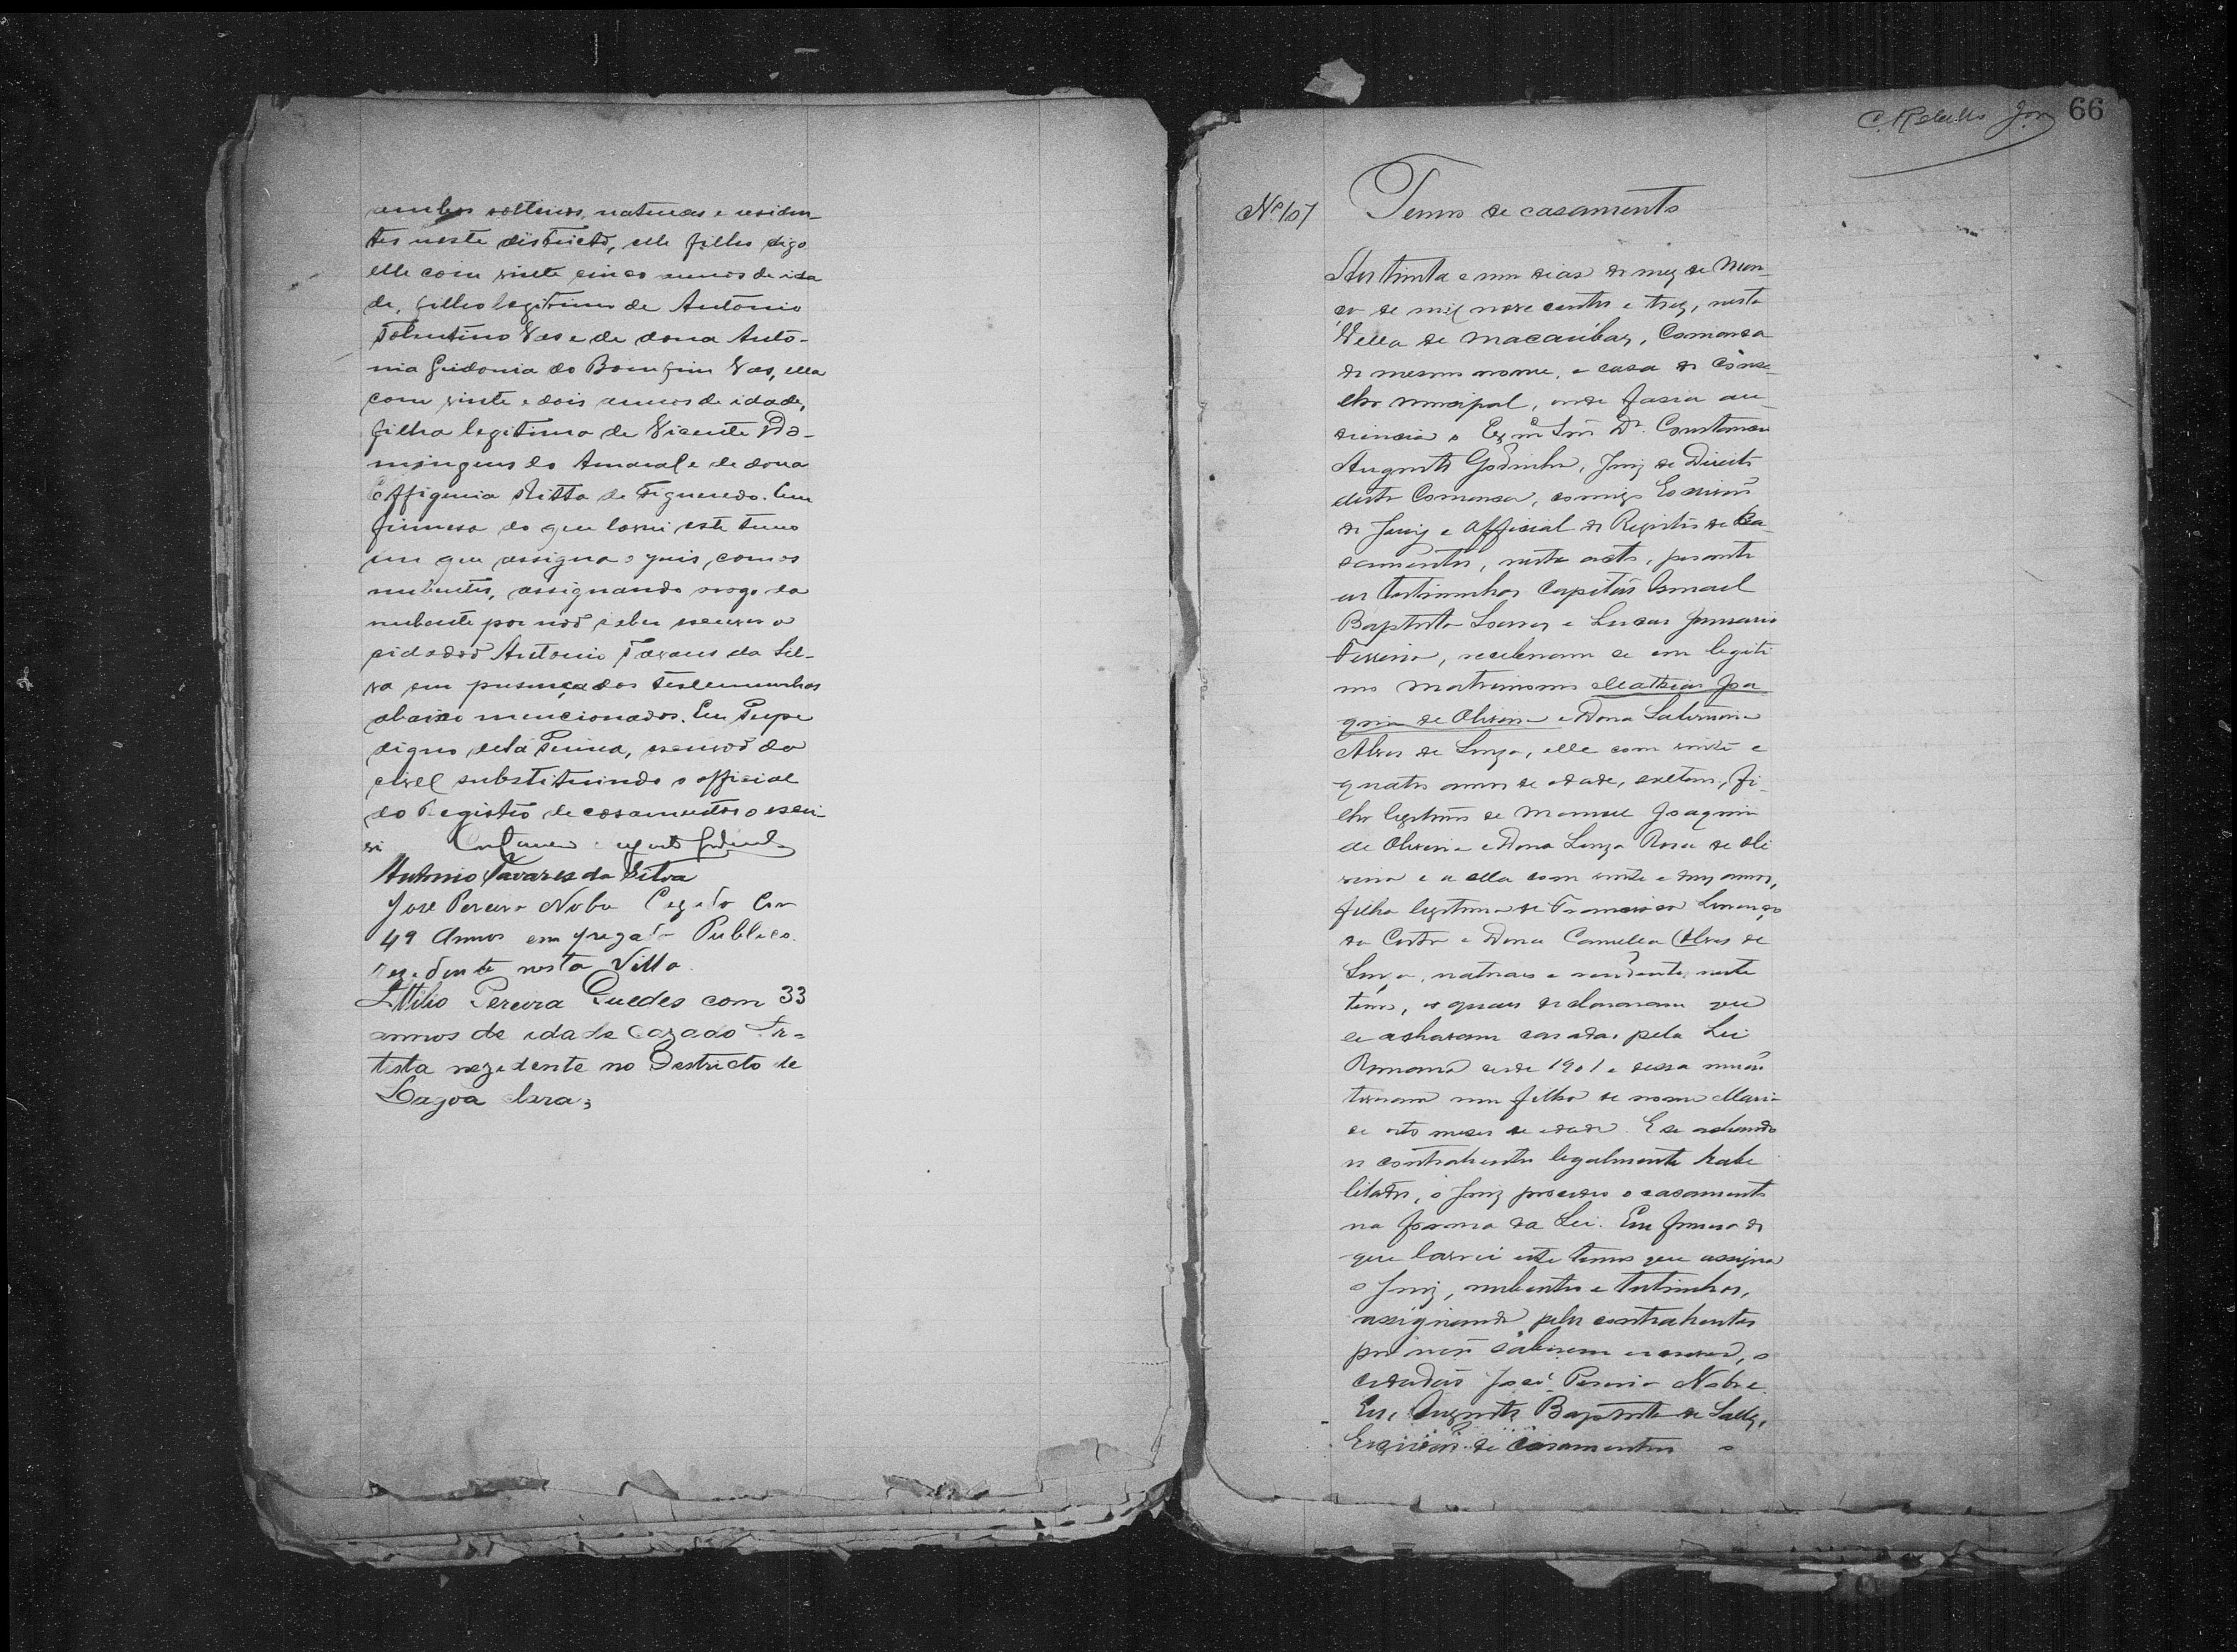 ambos solteiros, naturaes e residen-
tes neste districto, elle filho digo
elle com vinte cinco annos de ida
de, filho legitimo de Antonio
Tolentino Vas e de dona Anto-
nia Guidonia do Bomfim Vas, ella
com vinte e dois annos de idade,
filha legitima de Vicente Do-
mingues do Amaral e de dona
Effigenia Ritta de Figueredo. Em
firmesa do que lavrei este termo
em que assigna o juis, com os
nubentes, assignando arogo da
nubente por não saber escrever o
cidadão Antonio Tavares da Sil-
va em presença das testemunhas
abaixo mencionados. Eu
digno escrivão do
civel substituindo o official
do Registro de casamentos o escre-
vi
Antonio Tavares da Silva
José Pereira Nobre Cazado Com
49 Annos em pregado Publico
rezedente nesta Villa
Attilio Pereira Guedes com 33
annos de edade Cazado Ar-
tista rezedente no Destricto de
Lagoa Clara,
66
Nº 107
Termo de casamento
Aos trinta e um dias do mez de Mar-
ço de mil nove centos e trez, nesta
Villa de Macaúbas, Comarca
do mesmo nome, e casa do Conse-
lho municipal, onde fazia au-
diencia o Exmº Snr Dr. Constancio
Augusto Godinho, Juiz de Direito
desta Comarca, comigo Escrivão
do Juiz e Official do Registro de Ca-
samentos, neste acto, perante
as testimunhas Capitão Ismael
Baptista Soares e Lucas Januario
Ferreira, receberam se em legiti
mo matrimonio Mathias Joa
quim de Oliveira e Dona Saturnina
Alves de Souza, elle com vinte e
quatro annos de edade, solteiro, fi-
lho legitimo de Manoel Joaquim
de Oliveira e Dona Luiza Rosa de Oli
veira e a ella com vinte e annos,
filha legitima de Francisco Lourenço
da Costa e Dona Camilla Alves de
Souza, naturaes e residentes neste
termo, os quaes declararam que
se acharam casados pela Lei
Romana desde 1901 e dessa união
tiveram um filho de nome Maria
de oito meses de edade. E se achando
os contrahentes legalmente habe
litados, o Juiz procedeu o casamento
na forma da Lei. Em firmesa do
que lavrei este termo que assigna
o Juiz, nubentes e testimunhas,
assignando pelos contrahentes
por não saberem escrever, o
cidadão José Pereira Nobre.
Eu, Augusto Baptista de Salles,
Escrivão de casamentos o